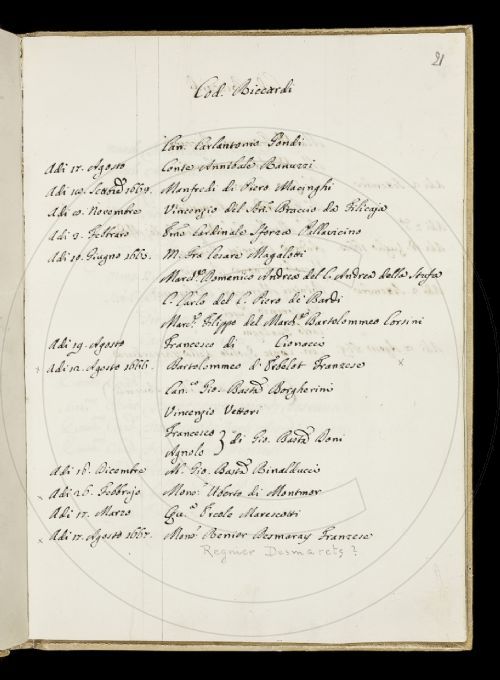 21
Cod. Riccardi
Can. Carlantonio Gondi
Adi 17. Agosto Conte Annibale Ranuzzi
Adi 10. Settbre 1664. Manfredi di Piero Macinghi
Adi 10. Novembre Vincenzio del Sen. Braccio da Filicaja
Adi 3. Febbraio Emo Cardinale Sforza Pallavicino
Adi 10. Giugno 1665. M. Fra Cesare Magalotti
March. Domenico Andrea del C. Andrea della Stufa
C. Carlo del C. Piero de Bardi
March. Filippo del March. Bartolommeo Corsini
Adi 19. Agosto Francesco di Cionaccio
x Adi 12. Agosto 1666. Bartolommeo d'Erbelot Franzese x
Can.co Gio. Basta Borgherini
Vincenzio Vettori
Francesco
Agnolo } di Gio. Basta Doni
Adi 16. Dicembre Ab. Gio. Basta Rinalduccio
x Adi 26. Febbrajo Mons. Uberto di Montmor
Adi 17. Marzo Ercole Marescotti
x Adi 17. Agosto 1667. Mons. Renier Desmaray Franzese
Regnier Desmarets?